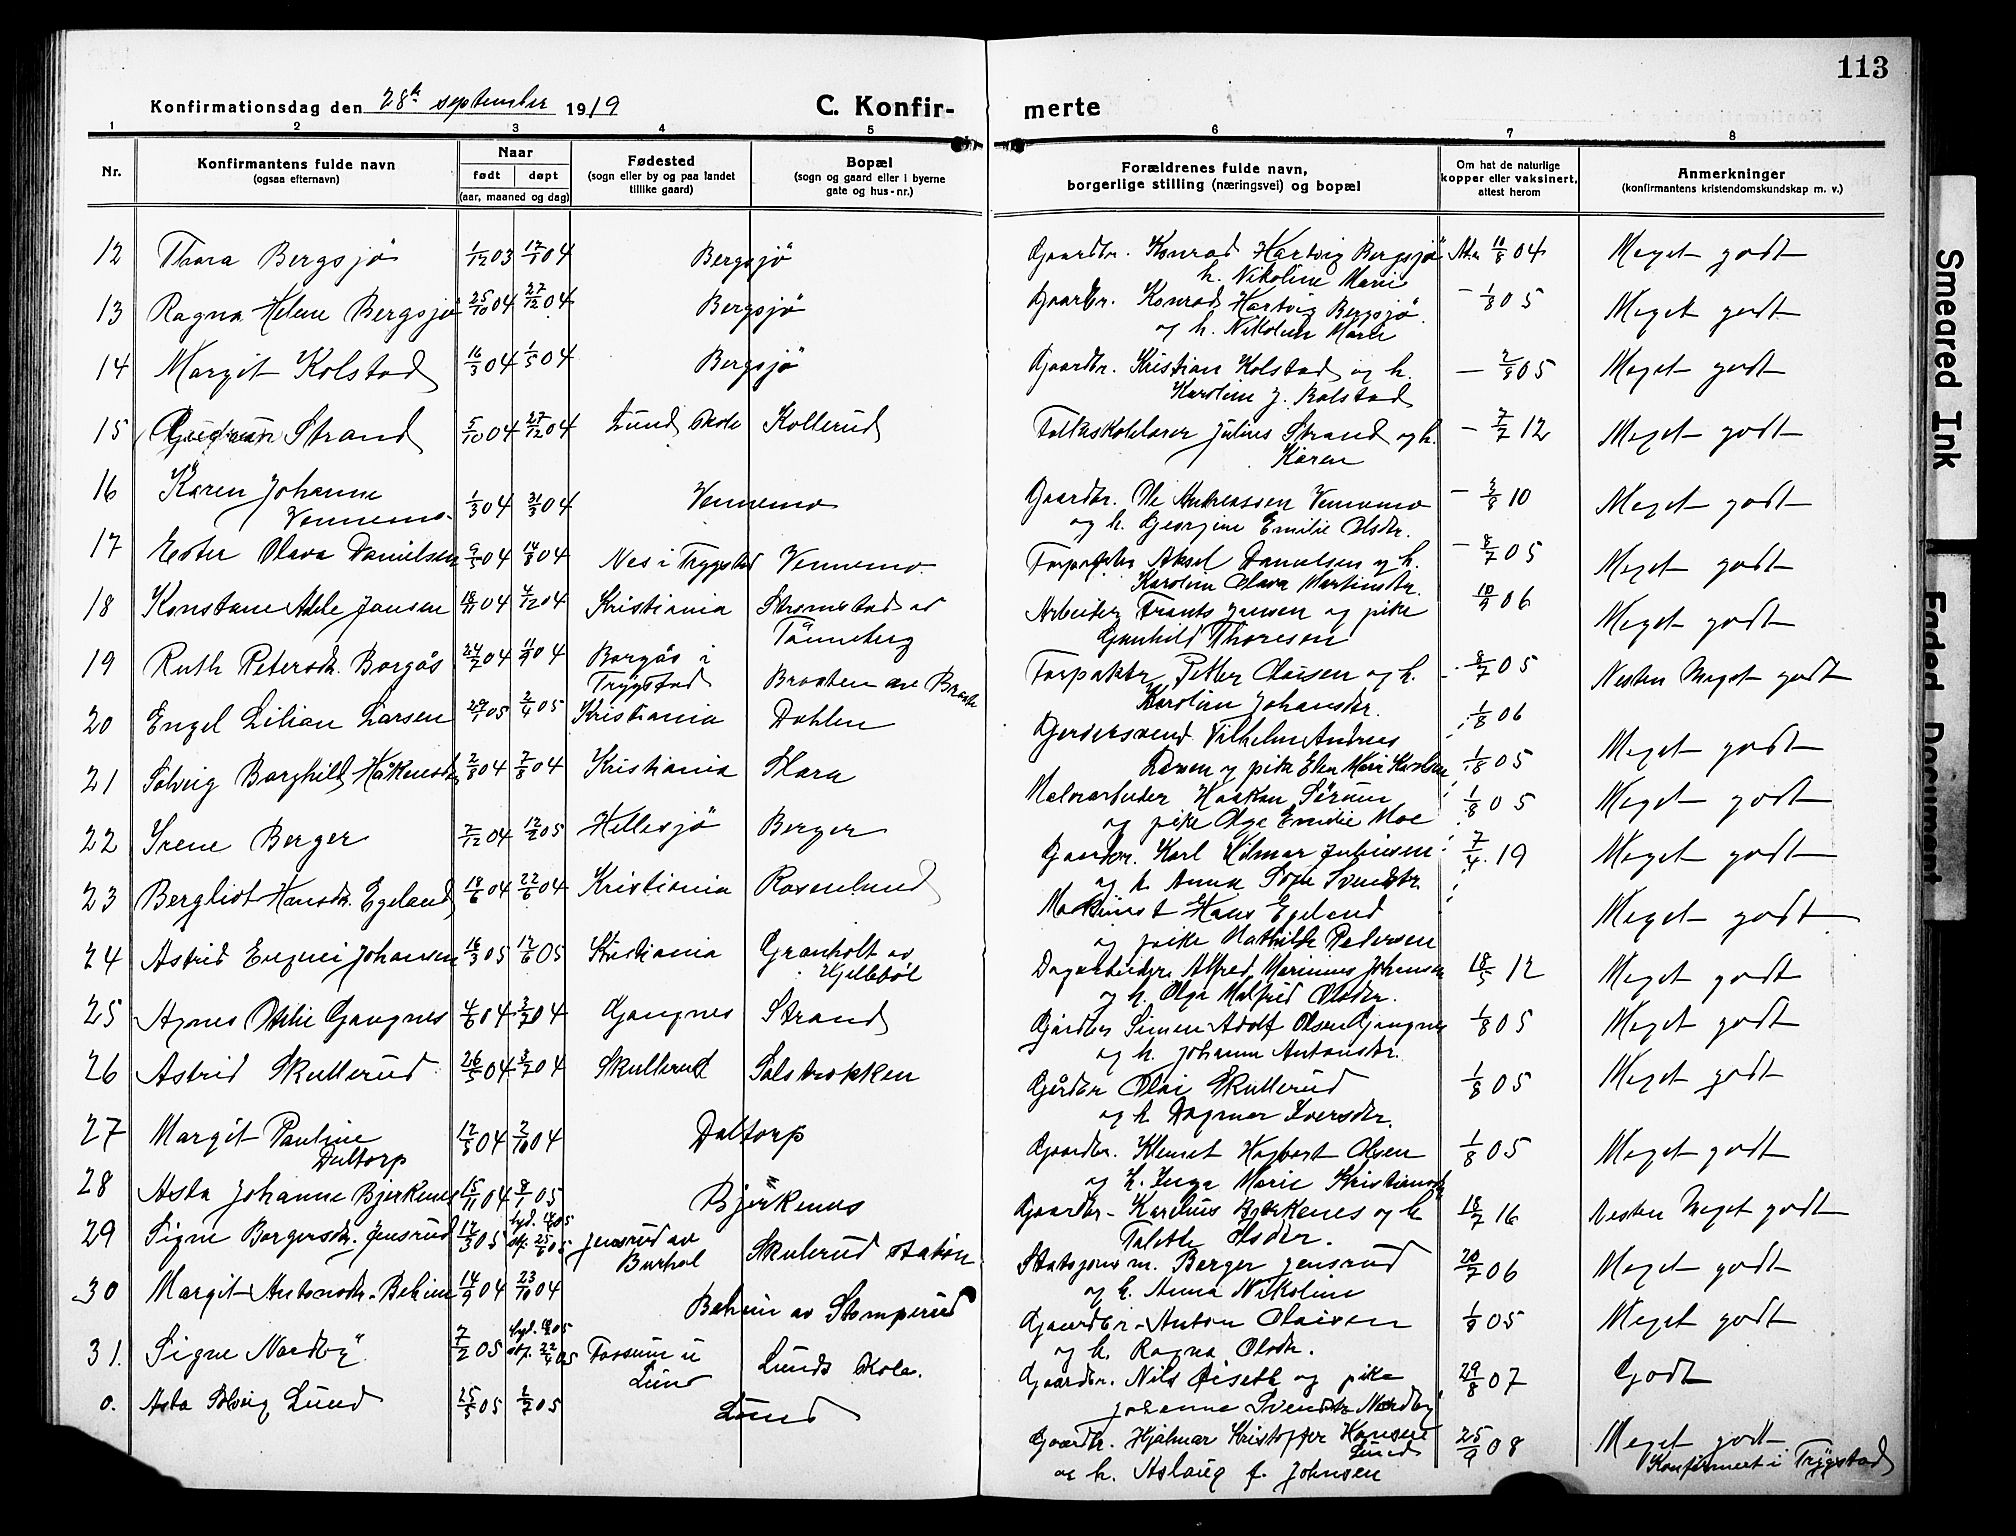 113
Konfirmationsdag den 28de september 1919
C. Konfir- merte
1 2 3 4 5 6 7 8
Nr.
Konfirmantens fulde navn
(ogsaa efternavn)
Naar
født døpt
(aar, maaned og dag)
Fødested
(sogn eller by og paa landet
tillike gaard)
Bopæl
(sogn og gaard eller i byerne
gate og hus-nr.)
Forældrenes fulde navn,
borgerlige stilling (næringsvei) og bopæl
Om hat de naturlige
kopper eller vaksinert,
attest herom
Anmerkninger
(konfirmantens kristendomskundskap m. v.)
12 Thora Bergsjö 1/12 03 17/1 04 Bergsjö Gaardbr. Konrad Hartvig Bergsjö 10/8 04 Meget godt
h. Nikoline Marie
13 Ragna Helene Bergsjö 25/10 04 27/12 04 Bergsjö Gaardbr. Konrad Hartvig Bergsjö - 1/8 05 Meget godt
og h. Nikoline Marie
14 Margit Kolstad 16/3 04 1/5 04 Bergsjö Gaardbr. Kristian Kolstad og h. Meget godt
Karoline J. Kolstad
15 Gudrun Strand 5/10 04 27/12 04 Lund Skole Kollerud Folkeskolelærer Julius Strand og h. - 7/7 12 Meget godt
Karen
16 Karen Johanne 1/3 04 Vennemo Gaardbr. Ole Andreassen Vennemo 10 Meget godt
Vennemo
og h. Georgine Emilie Olsdtr.
17 Ester Olava Danielsen 9/5 04 14/8 04 Nes i Trygstad Vennemo Aksel Danielsen og h. - 8/7 05 Meget godt
Karoline Olava Martinsdtr.
18 Konstane Adele Jansen 18/11 04 04 Kristiania Strømstad av Arbeider Frants Jansen og pike 10/9 06 Meget godt
Tønneberg
Gunhild Thoresen
19 Ruth Petersdtr. Borgås 24/7 04 11/9 04 Borgås i Petter Olaisen og h. 8/7 05 Nesten Meget godt
Trygstad Braaten av
Karoline Johansdtr.
20 Engel Lilian Larsen 29/1 05 2/4 05 Kristiania Dahlen Vilhelm Andreas 1/8 06 Meget godt
Larsen og pike Elen Marie Karlsen
21 Solveig Borghild Håkensdtr. 2/8 04 7/8 04 Kristiania Slara 1/8 05 Haakon Sörum Meget godt
og pike Olga Emilie Moe
22 Irene Berger 7/12 04 12/2 05 Hellesjö Berger Gaardbr. Karl Hilmar Juliusen 1/8 05 Meget godt
og h. Anna Sofie Svendsdtr.
23 Bergliot Hansdtr. Egeland 18/6 04 22/6 04 Kristiania Rosenlund Maskinist Hans Egeland 7/4 19 Meget godt
og pike Mathilde Pedersen
24 Astrid Eugenie Johansen 16/3 05 12/6 05 Kristiania Granholt av Dagarbeider Alfred Marinius Johansen 18/5 12 Meget godt
Hjellebøl
og h. Olga Malfrid Olsdtr.
25 Agnes Othilie Gangnes 4/6 04 3/7 04 Gangnes Strand Gårdbr. Simen Adolf Olsen Gangnes 1/8 05 Meget godt
og h. Johanne Antonsdtr.
26 Astrid Skullerud 26/5 04 3/7 04 Skullerud Solstrokken Gårdbr Olai Skullerud 1/8 05 Meget godt
og h Dagmar Iversdtr.
27 Margit Pauline 12/8 04 2/10 04 Daltorp Gaardbr. Klemet Hagbart Olsen 1/8 05 Meget godt
Daltorp
og h. Inga Marie Kristiansdtr
28 Asta Johanne Bjerkenes 15/11 04 8/1 05 Bjerkenes Gaardbr. Karelius Bjerkenes og h 18/7 16 Nesten Meget godt
Talette Olsdtr.
29 Signe Borgersdtr. Jensrud 12/3 05 Jensrud av Skulerud station Berger Jensrud 20/7 06 Meget godt
Burhol
og h. Anna Nikoline
30 Margit Antonsdtr. Behim 14/9 04 23/10 04 Behim av Stomperud Gaardbr. Anton Olaisen 1/9 05 Meget godt
og h. Ragna Olsdtr.
31. Signe Nordby 7/2 05 Fossum u Lunds Skole. Gaardbr. Nils Øiseth og pike 29/8 07 Godt
Lund
Johanne Svendsdtr Nordby
0. Asta Solveig Lund 25/5 05 2/7 05 Lund Gaardbr. Hjalmar Kristoffer Hansen 25/9 08 Meget godt
Lund
og h. Aslaug f. Johnsen
Konfirmert i Trygstad
Smeared Ink
Faded Document